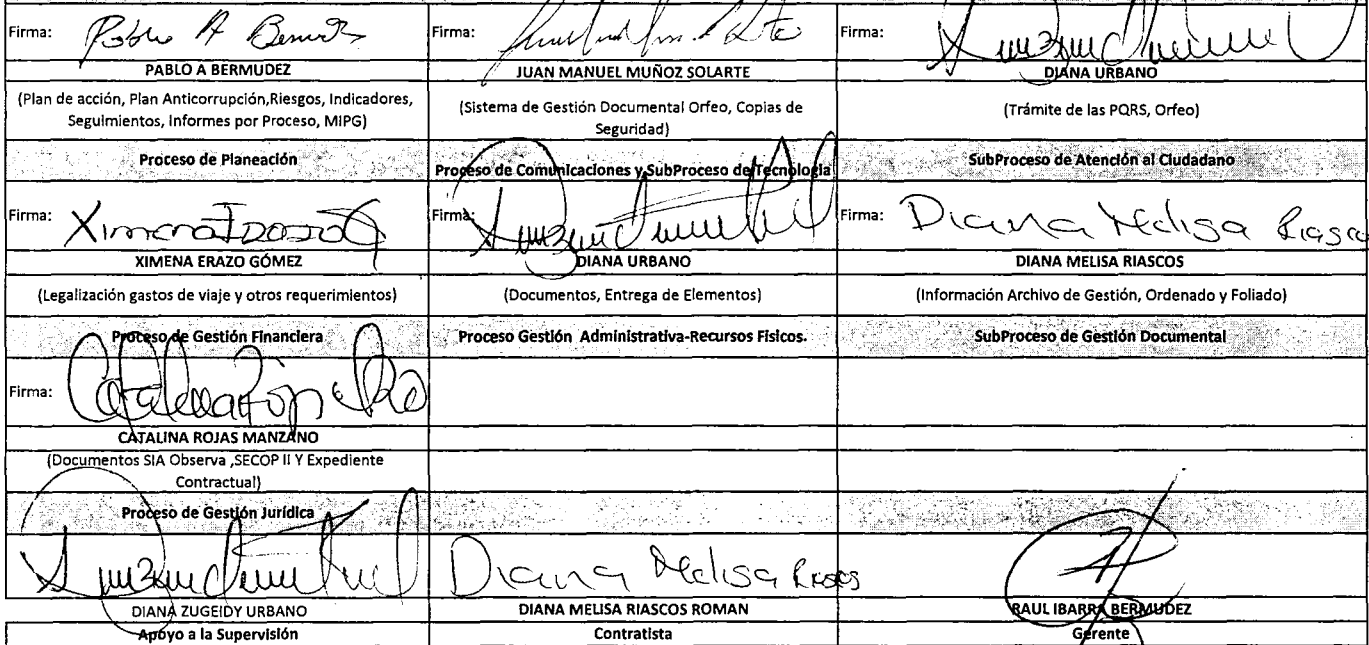 Firma: Pablo A Bermudez Firma: Firma:
PABLO A BERMUDEZ JUAN MANUEL MUÑOZ SOLARTE DIANA URBANO
(Plan de acción, Plan Anticorrupción,Riesgos, Indicadores, Seguimientos, Informes por Proceso, MIPG) (Sistema de Gestión Documental Orfeo, Copias de Seguridad) (Trámite de las PQRS, Orfeo)
Proceso de Planeación Proceso de Comunicaciones y SubProceso de Tecnologia SubProceso de Atención al Ciudadano
Firma: Ximena Erazo G Firma: Firma: Diana Melisa Riascos
XIMENA ERAZO GÓMEZ DIANA URBANO DIANA MELISA RIASCOS
(Legalización gastos de viaje y otros requerimientos) (Documentos, Entrega de Elementos) (Información Archivo de Gestión, Ordenado y Foliado)
Proceso de Gestión Financiera Proceso Gestión Administrativa-Recursos Fisicos. SubProceso de Gestión Documental
Firma:
CATALINA ROJAS MANZANO
(Documentos SIA Observa ,SECOP II Y Expediente Contractual)
Proceso de Gestión Jurídica
Diana Melisa Riascos
DIANA ZUGEIDY URBANO DIANA MELISA RIASCOS ROMAN RAUL IBARRA BERMUDEZ
Apoyo a la Supervisión Contratista Gerente